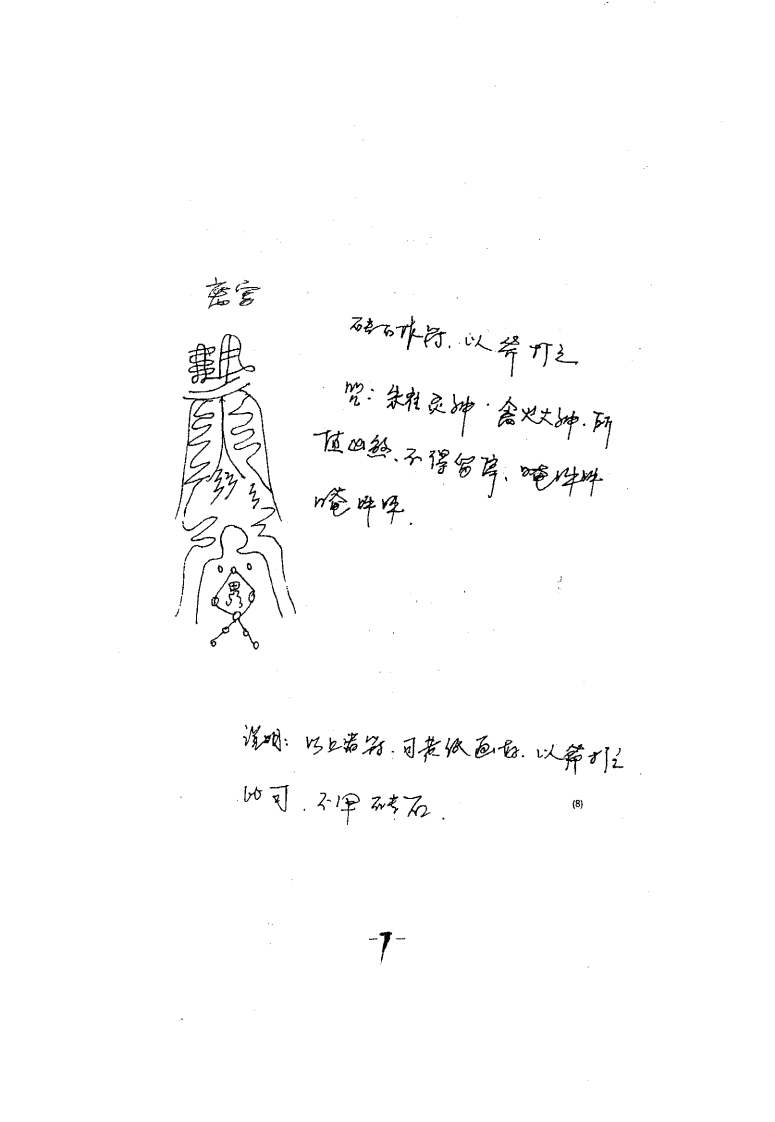 密宫
砖石作符、以斧打之
咒：朱雀灵神·翕火大神、所
值凶煞、不得留停、唵吽吽
唵吽吽.
说明：以上诸符、可黄纸画好、以斧打之
亦可、不用砖石.
(8)
-7-